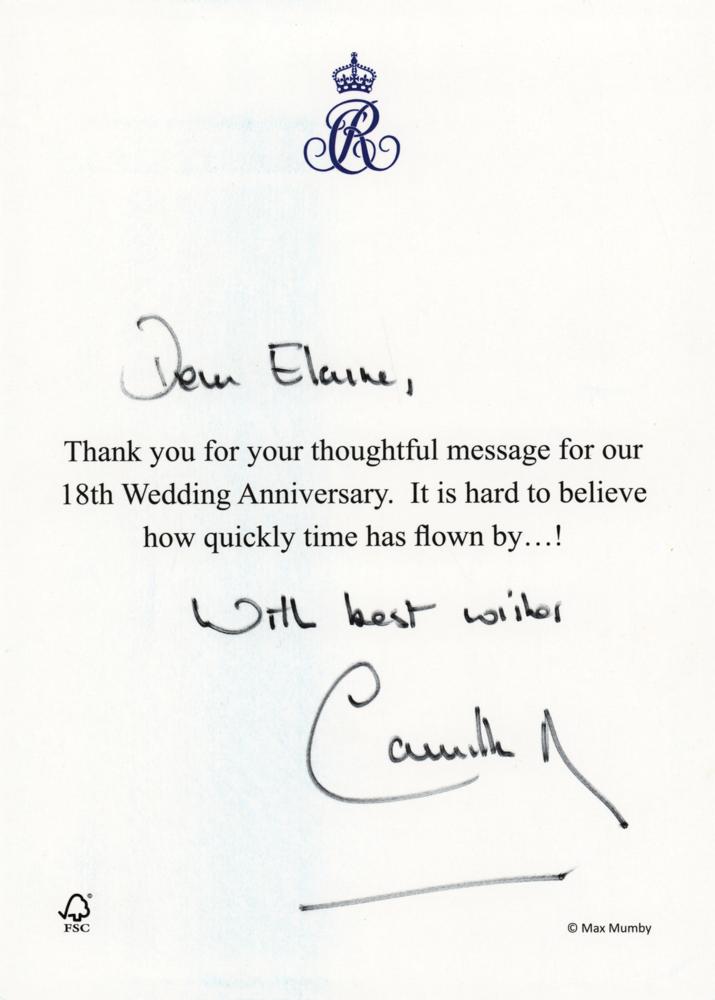 CR
Dear Elaine,
Thank you for your thoughtful message for our
18th Wedding Anniversary. It is hard to believe
how quickly time has flown by…!
With best wishes
Camilla R
FSC
© Max Mumby